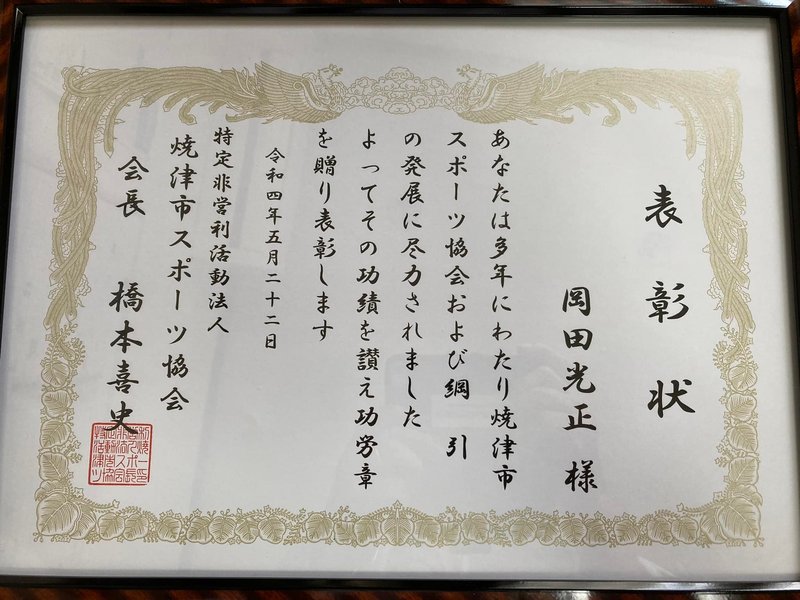 表彰状
岡田光正様
あなたは多年にわたり焼津市
スポーツ協会および綱引
の発展に尽力されました
よってその功績を讃え功労章
を贈り表彰します
令和四年五月二十二日
特定非営利活動法人
焼津市スポーツ協会
会長 橋本喜史